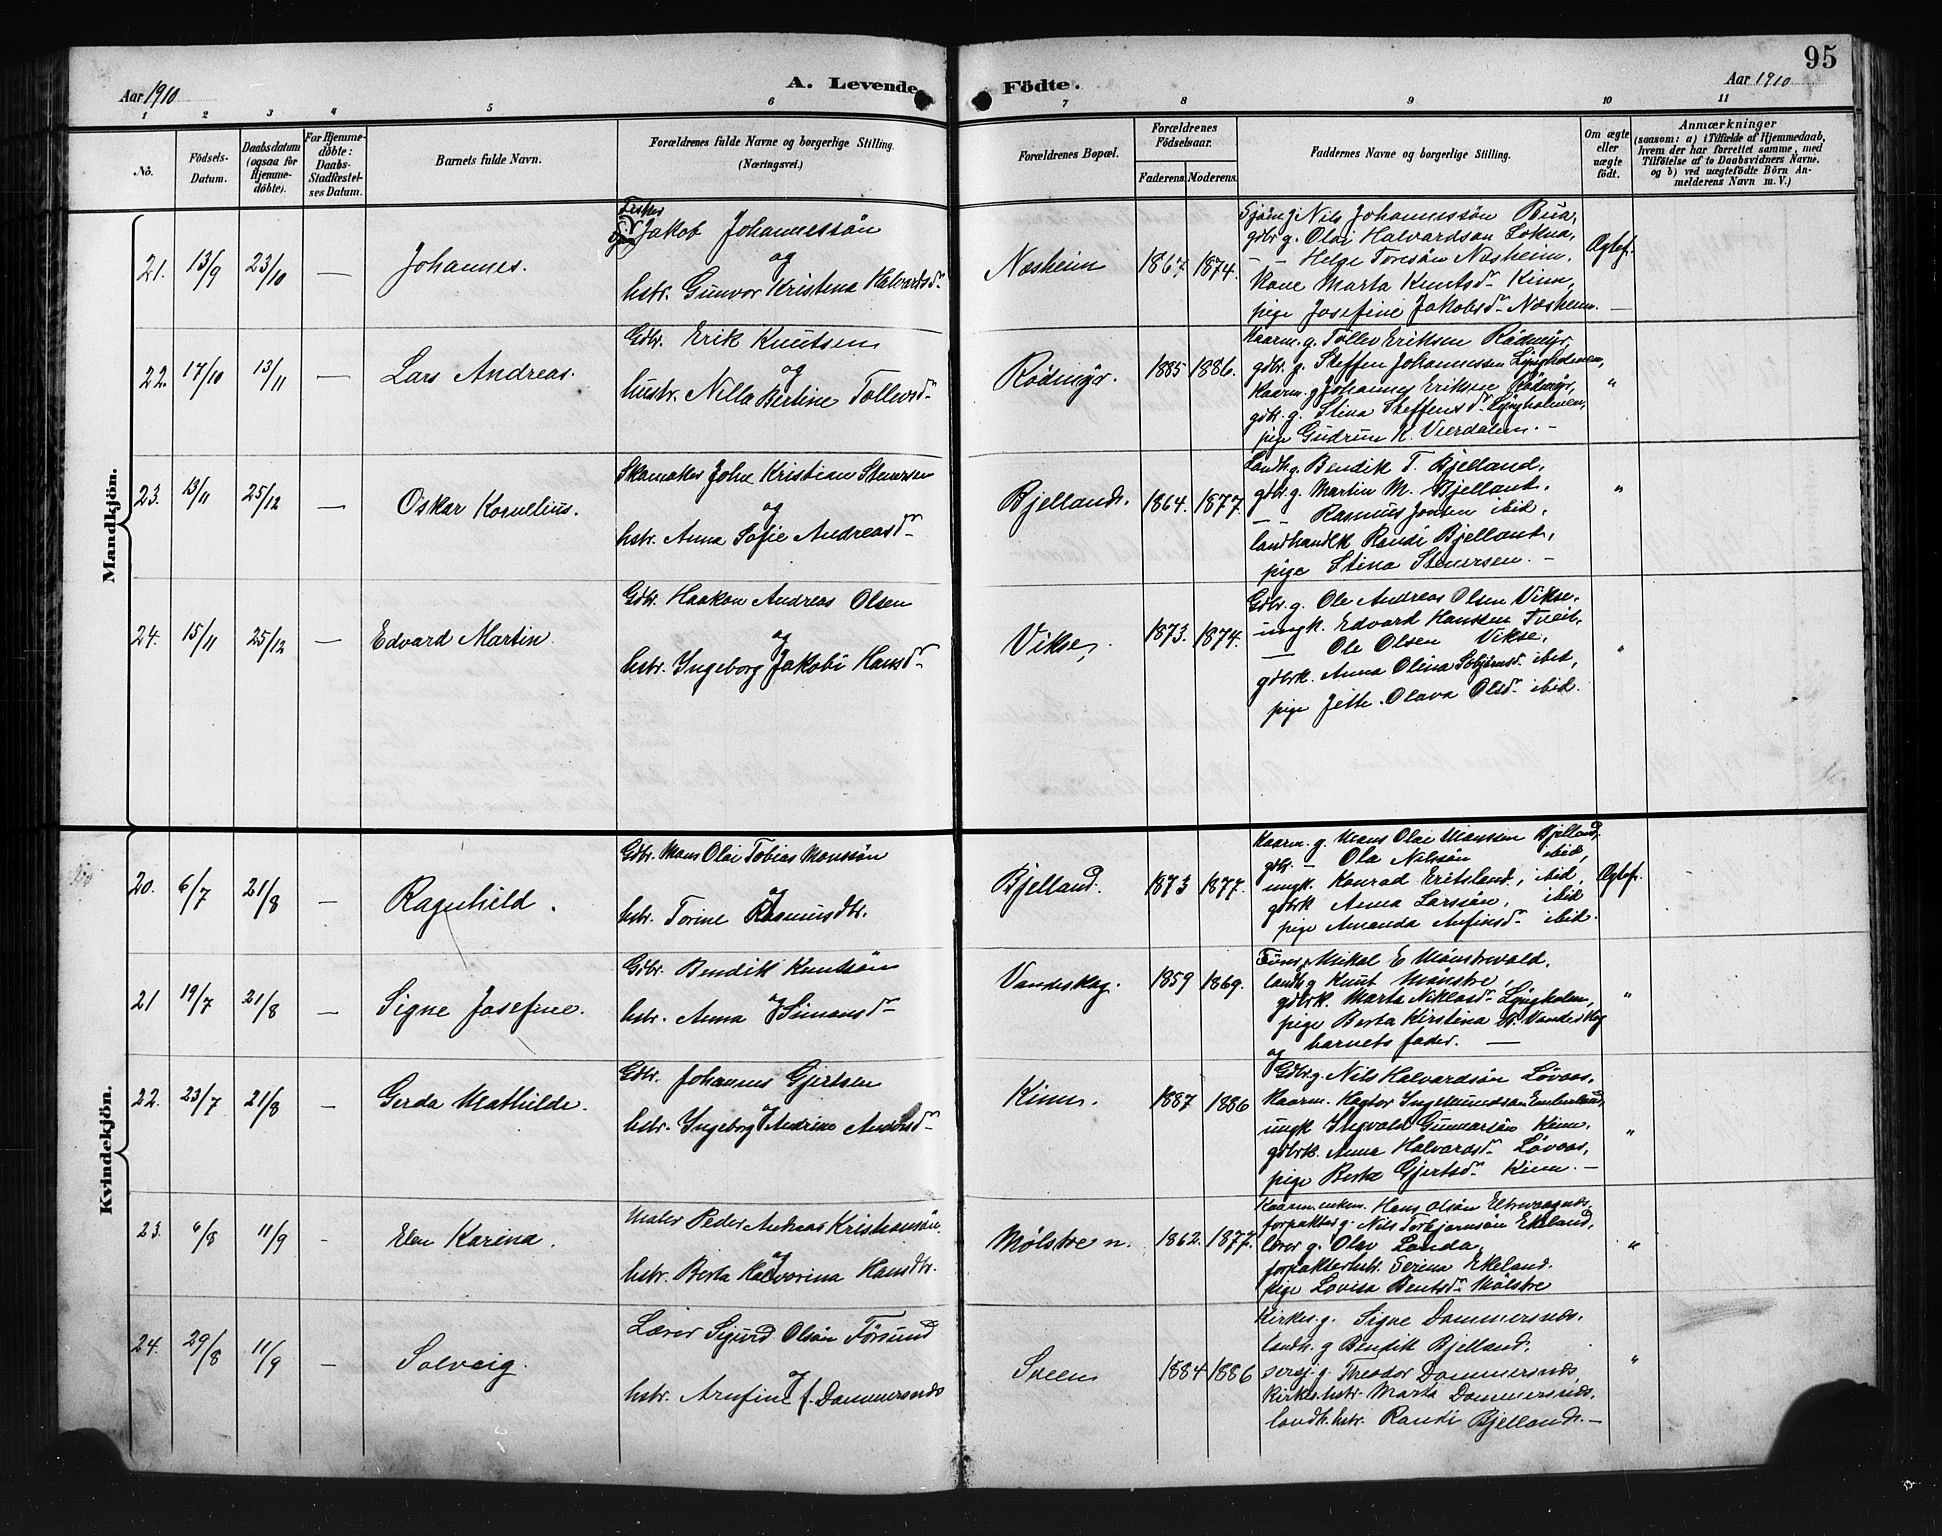 95
Aar 1910
A. Levende
Födte.
Aar 1910
1 2 3 4 5 6 7 8 9 10 11
No.
Födsels-
Datum.
Daabsdatum
(ogsaa for
Hjemme-
döbte).
For Hjemme-
döbte:
Daabs-
Stadfæstel-
ses Datum.
Barnets fulde Navn.
Forældrenes fulde Navne og borgerlige Stilling.
(Næringsvei.)
Forældrenes Bopæl.
Forældrenes
Födselsaar.
Faderens. Moderens.
Faddernes Navne og borgerlige Stilling.
Om ægte
eller
uægte
födt.
Anmærkninger
(saasom: a) i Tilfælde af Hjemmedaab,
hvem der har forrettet samme, med
Tilföielse af to Daabsvidners Navne.
og b) ved uægtefödte Börn An-
melderens Navn m. V.)
Mandkjön.
21. 13/9 23/10 — Johannes.
Fisker
Jakob Johannessön
og
hstr. Gunvor Kristina Halvardsdr
Næsheim 1867. 1874.
Nils Johannessön Bua,
gdbr g. Olai Halvardsøn Lokna,
— — Helge Toresön Næsheim,
Kone Marta Knutsdr Kinn,
pige Josefine Jakobsdr Næsheim. —
Ægtef.
22. 17/10 13/11 — Lars Andreas.
Gdbr. Erik Knutsen
og
hustr. Nilla Bertine Tollevsdr
Rödmyr. 1885 1886.
Kaarm. g. Tollev Eriksen Rödmyr,
gdbr. g. Steffen Johannessen Lyngholmen,
Kaarm. g Johannes Eriksen Rödmyr,
gdbr. g. Stina Steffensdr Lyngholmen,
pige Gudrun K. Veerdalen. —
"
23. 13/11 25/12 — Oskar Kornelius.
Skomaker John Kristian Stenersen
og
hstr. Anna Sofie Andreasdr
Bjelland. 1864. 1877.
Landh. g. Bendik T. Bjelland,
gdbr g. Martin M. Bjelland.
— — Rasmus Jonsen ibid,
landhandlk Randi Bjelland,
pige Stina Stenersen. —
"
24. 15/11 25/12 — Edvard Martin.
Gdbr. Haakon Andreas Olsen
og
hstr. Ingeborg Jakobi Hansdr
Vikse, 1873. 1874.
Gdbr. g. Ole Andreas Olsen Vikse.
ungk. Edvard Hansen Tveit,
— Ole Olsen Vikse,
gdbrk. Anna Olina ibid,
pige Jette Olava Olsdr ibid.
"
Kvindekjön.
20. 6/7 21/8 — Ragnhild.
Gdbr. Mons Olai Tobias Monssön
og
hstr. Torine Rasmusdtr.
Bjelland. 1873 1877.
Kaarm. g. Mons Olai Monssen Bjelland,
gdbr. — Ola Nilssön ibid,
ungk. Konrad Eritsland, ibid,
gdbrk Anna Larssön, ibid
pige Amanda Anfinsdr ibid.
Ægtef.
21 19/7 21/8 — Signe Josefine.
Gdbr. Bendik Knutsön
og
hstr. Anna Simonsdr
Vandeskog. 1859 1869.
Mikal E Mönstrevold.
landh g Knut Mönstre,
gdbrk. Marta Niklasdr Lyngholm,
pige Berta Kirstina B. Vandeskog
og barnets fader. —
"
22. 23/7 21/8 — Gerda Mathilde.
Gdbr. Johannes Gjertsen
og
hstr. Ingeborg Andrine Andersdr
Kinn. 1887 1886
Gdbr g Nils Halvardsön Lövaas.
Kaarm. Hagbor Ingemundsøn Emberland,
ungk Ingvald Gunnarsön Kinn.
gdbrk. Anna Halvorsdr Lövaas,
pige Berta Gjertsdr Kinn. —
"
23. 6/8 11/9 - Elen Karina.
Maler Peder Andreas Kristiansön
og
hstr. Berta Halvorina Hansdtr.
Mölstre n. 1862. 1877.
Kaarm. enkem. Hans Olsön
forpakter g. Nils Torbjørnsön Ekeland,
lærer g. Olav Landa,
forpakterhstr. Serina Ekeland.
pige Lovisa Bentsdr Mölstre
"
24. 29/8 11/9 — Solveig.
Lærer Sigurd Olsön Försund
og
hstr. Arnfine f. Dommersnes
Sveen 1884 1886
Kirkes. g. Signe Dommersnes.
landh. g Bendik Bjelland.
sersj. g. Theodor Dommersnes,
Kirkes. hstr. Marta Dommersnes,
landh. hstr. Randi Bjelland. —
"